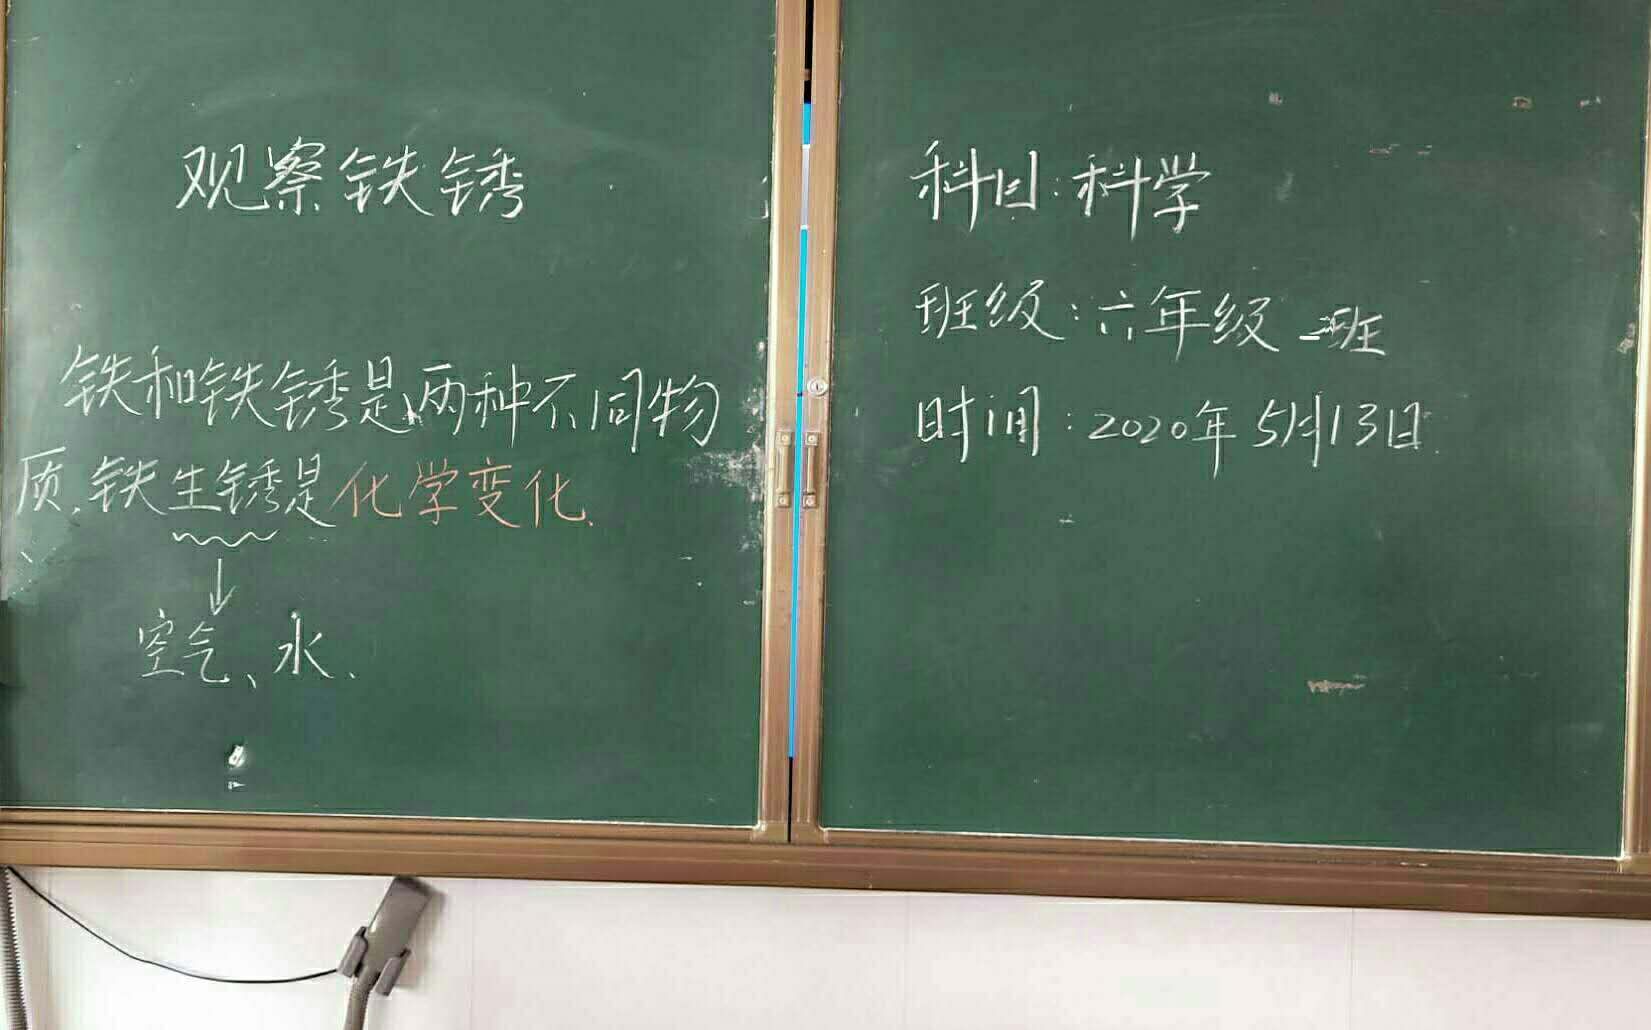 观察铁锈
铁和铁锈是两种不同物
质.铁生锈是化学变化.
空气、水.
科目:科学
班级:六年级二班
时间:2020年5月13日.